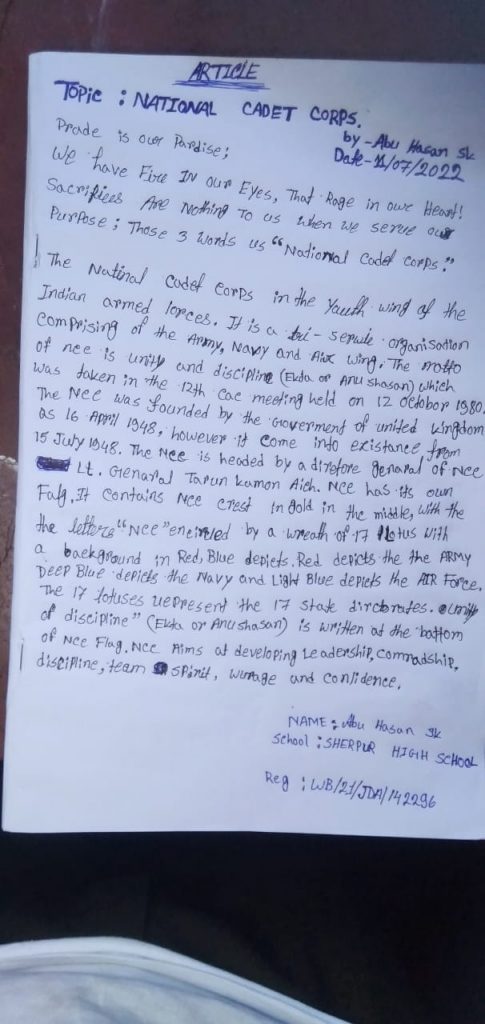 ARTICLE
Topic : NATIONAL CADET CORPS.
by - Abu Hasan Sk
Date - 11/07/2022
Prade is our Pardise;
We have Fire IN our Eyes, That Rage in owr Heart!
Sacrifiees Are Nothing To us when we serve our
Purpose; Those 3 words us "National Cadet corps."
The Natinal cadet corps in the Yauth wing of the
Indian armed forces. It is a tri-serwie organisation
comprising of the Army, Navy and Air wing. The motto
of nee is unity and discipline (Ekda or Anushasan) which
was taken in the 12th cac meeting held on 12 october 1980.
The Nee was founded by the Goverment of united kingdom
as 16 April 1948, however it come into existance from
15 July 1948. The Nee is headed by a diretore genaral of Nee
Lt. Genaral Tarun kamon Aich. Nee has its own
Falg, It contains Nee crest in gold in the middle, with the
the letters "Nee" encircled by a wreath of 17 lotus with
a background in Red, Blue depiets. Red depicts the the ARMY
Deep Blue depicts the Navy and Light Blue depicts the AIR Force.
The 17 lotuses uepresent the 17 state dircbrates.
of discipline" (Ekta or Anushasan) is written at the battom
of Nee Flag. Nee Aims at developing Leadership, comradship,
discipline, team spirit, and confidence.
NAME : Abu Hasan Sk
School : SHERPUR HIGH SCHOOL
Reg : WB/21/JDA/142296